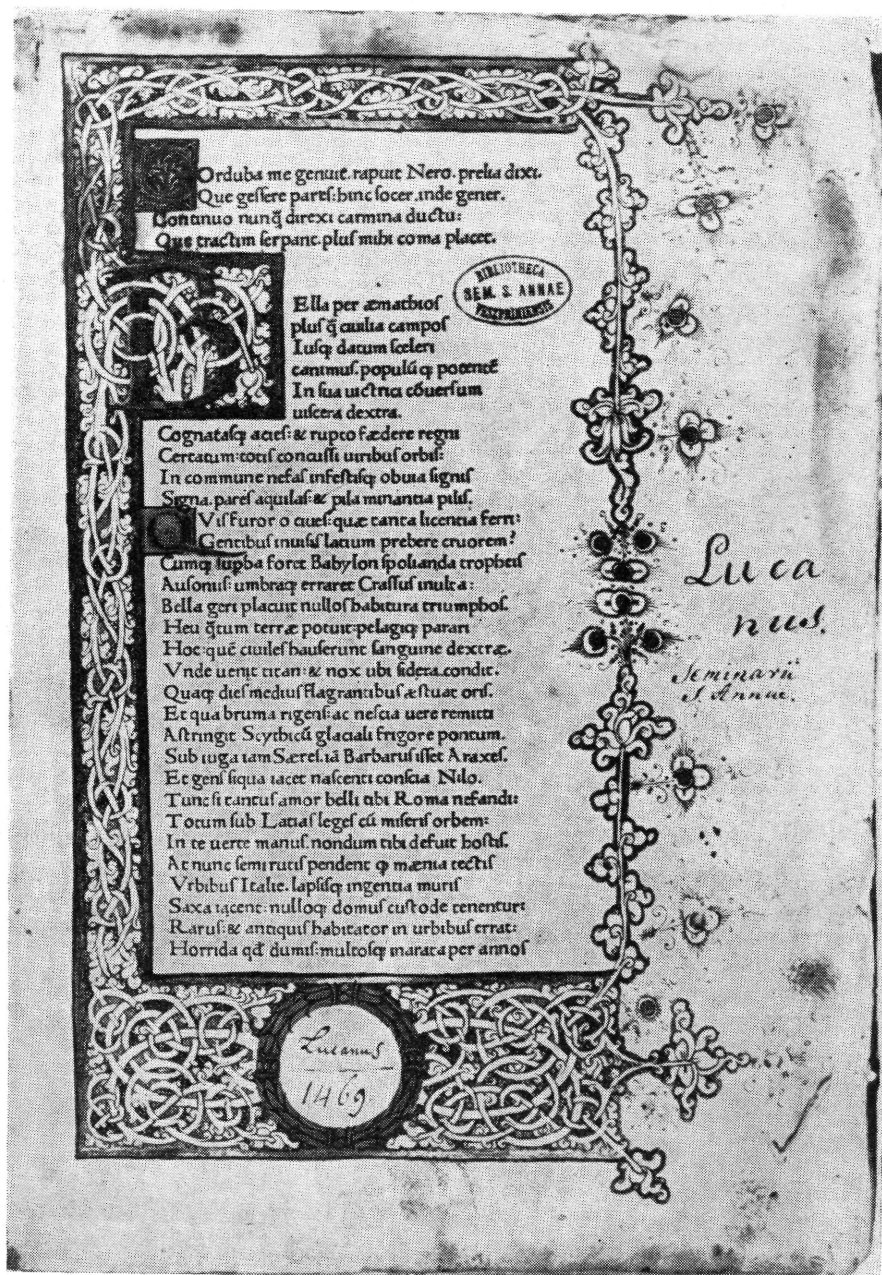 Corduba me genuit. rapuit Nero. prelia dixi.
Que gessere pares: hinc socer. inde gener.
Continuo nunq̃ direxi carmina ductu:
Que tractim serpant. plus mihi coma placet.
BIBLIOTHECA
SEM. S. ANNAE
VESZPRIMIENSIS
BElla per æmathios
plus q̃ ciuilia campos
Iusq; datum sceleri
canimus. populũ q; potentẽ
In sua uictrici cõuersum
uiscera dextra.
Cognatasq; acies: & rupto fædere regni
Certatum: totis concussi uiribus orbis:
In commune nefas infestisq; obuia signis
Signa. pares aquilas: & pila minantia pilis.
QVis furor o ciues: quæ tanta licentia ferri:
Gentibus inuisis latium prebere cruorem?
Cumq; supba foret Babylon spolianda tropheis
Ausoniis: umbraq; erraret Crassus inulta:
Bella geri placuit nullos habitura triumphos.
Heu q̃tum terræ potuit: pelagiq; parari
Hoc: quẽ ciuiles hauserunt sanguine dextræ.
Vnde uenit titan: & nox ubi sidera condit.
Quaq; dies medius flagrantibus æstuat oris.
Et qua bruma rigens: ac nescia uere remitti
Astringit Scythicũ glaciali frigore pontum.
Sub iuga iam Særes. iã Barbarus isset Araxes.
Et gens siqua iacet nascenti conscia Nilo.
Tunc si tantus amor belli tibi Roma nefandi:
Totum sub Latias leges cũ miseris orbem:
In te uerte manus. nondum tibi defuit hostis.
At nunc semi rutis pendent q; mænia tectis
Vrbibus Italie. lapsisq; ingentia muris
Saxa iacent: nulloq; domus custode tenentur:
Rarus: & antiquis habitator in urbibus errat:
Horrida qđ dumis: multosq; inarata per annos
Luca
nus.
Seminarii
S. Annae.
Lucanus
1469.